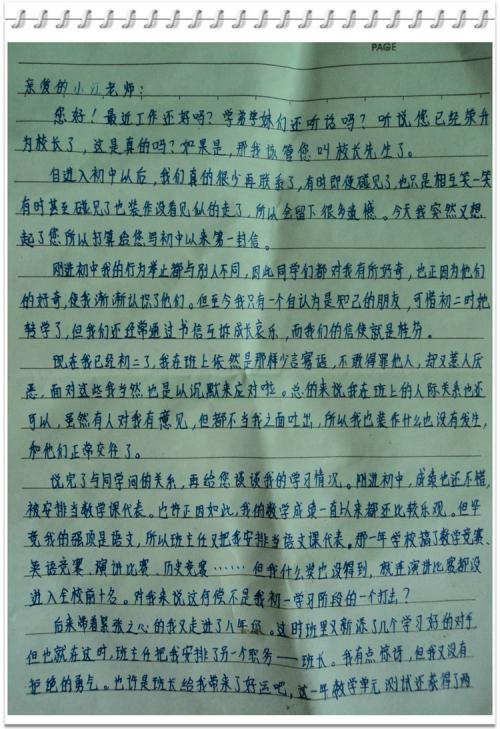 PAGE
亲爱的小江老师：
您好！最近工作还好吗？学弟学妹们还听话吗？听说您已经荣升
为校长了，这是真的吗？如果是，那我该管您叫校长先生了。
自进入初中以后，我们真的很少再联系了，有时即使碰见了，也只是相互笑一笑
有时甚至碰见了也装作没看见似的走了，所以会留下很多遗憾。今天我突然又想
起了您所以打算给您写初中以来第一封信。
刚进初中我的行为举止都与别人不同，因此同学们都对我有所好奇，也正因为他们
的好奇，使我渐渐认识了他们。但至今我只有一个自认为是知己的朋友，可惜初二时她
转学了，但我们还经常通过书信互诉成长哀乐，而我们的信使就是桂芬。
现在我已经初二了，我在班上依然是那样少言寡语，不敢得罪他人，却又惹人厌
恶，面对这些我当然也是以沉默来反对啦。总的来说我在班上的人际关系也还
可以，虽然有人对我有意见，但都不当我之面吐出，所以我也装作什么也没有发生，
和他们正常交往了。
说完了与同学间的关系，再给您谈谈我的学习情况。刚进初中，成绩也还不错，
被安排当数学课代表。也许正因如此，我的数学成绩一直以来都还比较乐观。但毕
竟我的强项是语文，所以班主任又把我安排当语文课代表。那一年学校搞了数学竞赛、
英语竞赛、演讲比赛、历史竞赛……但我什么奖也没得到，就连演讲比赛都没
进入全校前十名。对我来说这何偿不是我初一学习阶段的一个打击？
后来带着紧张之心的我又走进了八年级。这时班里又新添了几个学习好的对手
但也就在这时，班主任把我安排了另一个职务——班长。我有点惊讶，但我又没有
拒绝的勇气。也许是班长给我带来了好运吧，这一年数学单元测试还获得了两